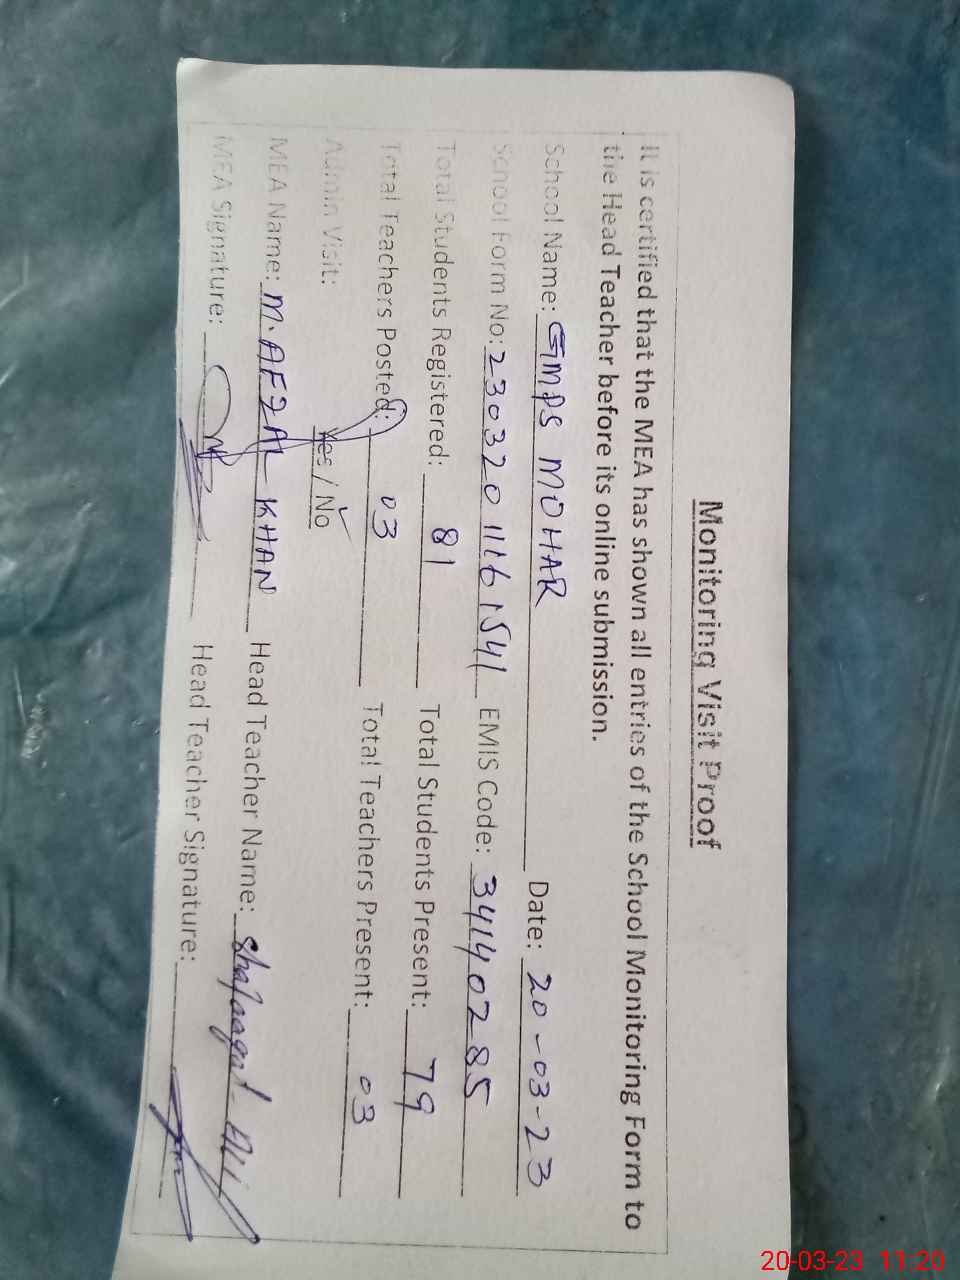 Monitoring Visit Proof
It is certified that the MEA has shown all entries of the School Monitoring Form to
the Head Teacher before its online submission.
School Name: GMPS MOHAR Date: 20-03-23
School Form No: 2303201161541 EMIS Code: 34140285
Total Students Registered: 81 Total Students Present: 79
Total Teachers Posted: 03 Total Teachers Present: 03
Admin Visit: Yes / No
MEA Name: M. AFZAL KHAN Head Teacher Name: Ali
MEA Signature: Head Teacher Signature:
20-03-23 11:20